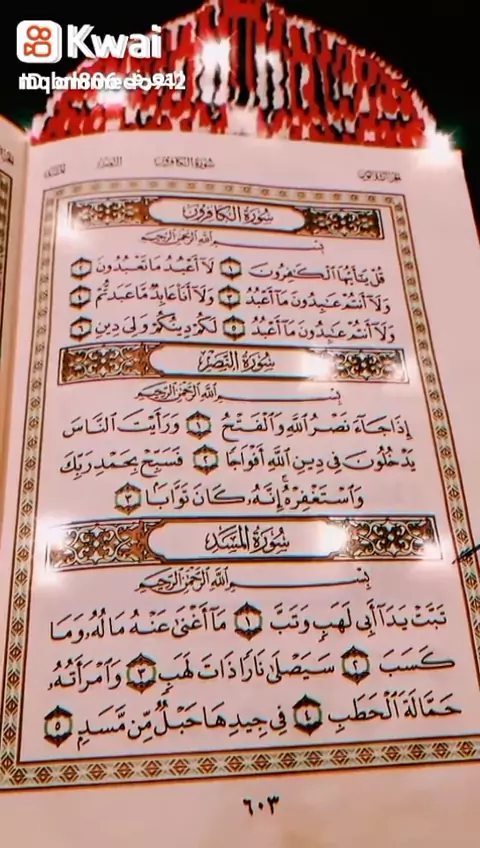 Kwai
سورة الكافرون
سُورَةُ الكَافِرُونَ
بِسْمِ اللَّهِ الرَّحْمَٰنِ الرَّحِيمِ
قُلْ يَٰٓأَيُّهَا ٱلْكَٰفِرُونَ ١ لَآ أَعْبُدُ مَا تَعْبُدُونَ ٢
وَلَآ أَنتُمْ عَٰبِدُونَ مَآ أَعْبُدُ ٣ وَلَآ أَنَا۠ عَابِدٌ مَّا عَبَدتُّمْ ٤
وَلَآ أَنتُمْ عَٰبِدُونَ مَآ أَعْبُدُ ٥ لَكُمْ دِينُكُمْ وَلِىَ دِينِ ٦
سُورَةُ النَّصْرِ
بِسْمِ اللَّهِ الرَّحْمَٰنِ الرَّحِيمِ
إِذَا جَآءَ نَصْرُ ٱللَّهِ وَٱلْفَتْحُ ١ وَرَأَيْتَ ٱلنَّاسَ
يَدْخُلُونَ فِى دِينِ ٱللَّهِ أَفْوَاجًا ٢ فَسَبِّحْ بِحَمْدِ رَبِّكَ
وَٱسْتَغْفِرْهُ ۚ إِنَّهُۥ كَانَ تَوَّابًۢا ٣
سُورَةُ المَسَدِ
بِسْمِ اللَّهِ الرَّحْمَٰنِ الرَّحِيمِ
تَبَّتْ يَدَآ أَبِى لَهَبٍ وَتَبَّ ١ مَآ أَغْنَىٰ عَنْهُ مَالُهُۥ وَمَا
كَسَبَ ٢ سَيَصْلَىٰ نَارًا ذَاتَ لَهَبٍ ٣ وَٱمْرَأَتُهُۥ
حَمَّالَةَ ٱلْحَطَبِ ٤ فِى جِيدِهَا حَبْلٌ مِّن مَّسَدٍۭ ٥
٦٠٣